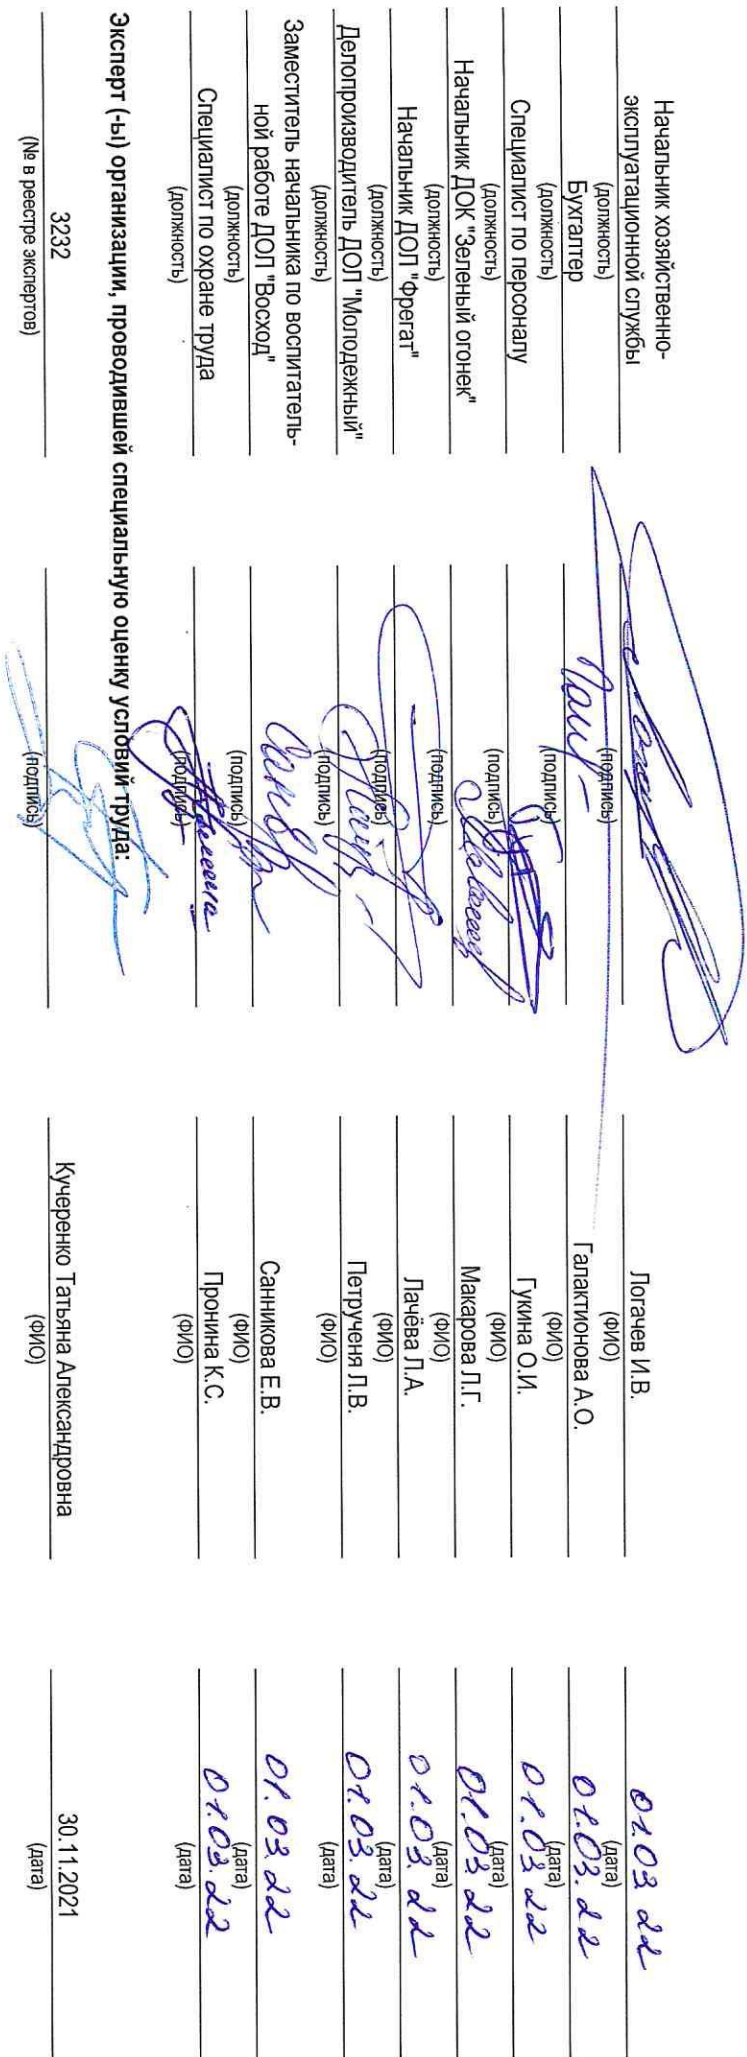 Начальник хозяйственно-
эксплуатационной службы Логачев И.В. 01.03.22
(должность) (подпись) (ФИО) (дата)
Бухгалтер Галактионова А.О. 01.03.22
(должность) (подпись) (ФИО) (дата)
Специалист по персоналу Гукина О.И. 01.03.22
(должность) (подпись) (ФИО) (дата)
Начальник ДОК "Зеленый огонек" Макарова Л.Г. 01.03.22
(должность) (подпись) (ФИО) (дата)
Начальник ДОЛ "Фрегат" Лачёва Л.А. 01.03.22
(должность) (подпись) (ФИО) (дата)
Делопроизводитель ДОЛ "Молодежный" Петрученя Л.В. 01.03.22
(должность) (подпись) (ФИО) (дата)
Заместитель начальника по воспитатель-
ной работе ДОЛ "Восход" Санникова Е.В. 01.03.22
(должность) (подпись) (ФИО) (дата)
Специалист по охране труда Пронина К.С. 01.03.22
(должность) (подпись) (ФИО) (дата)
Эксперт (-ы) организации, проводившей специальную оценку условий труда:
3232 Кучеренко Татьяна Александровна 30.11.2021
(№ в реестре экспертов) (подпись) (ФИО) (дата)